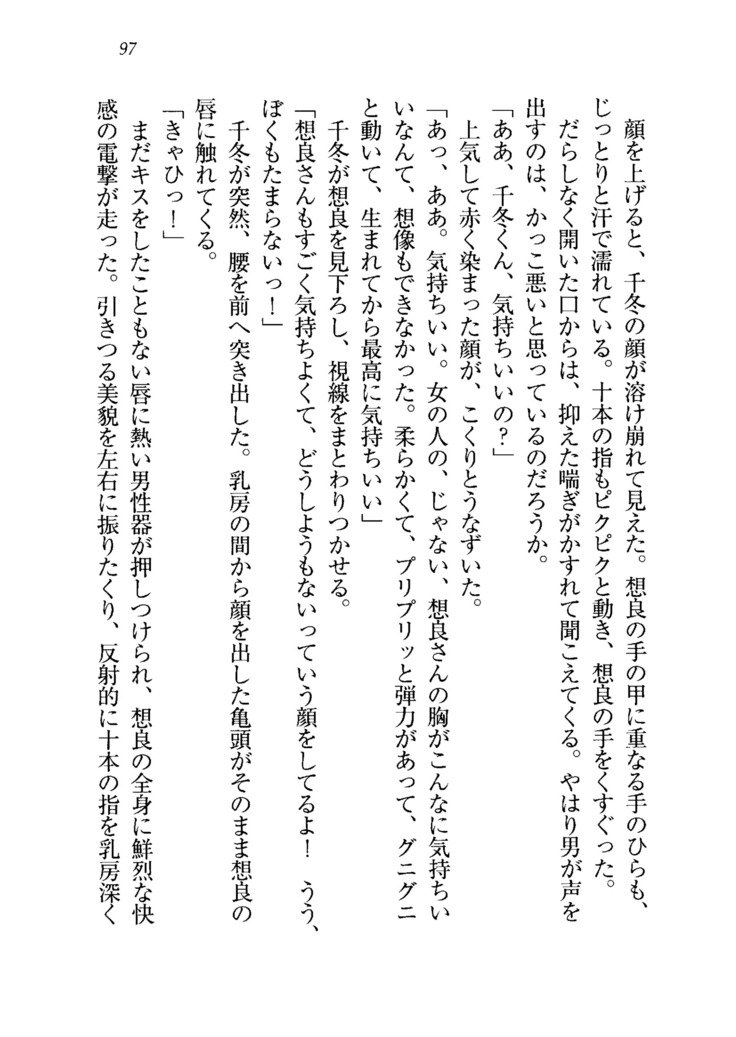 97
顔を上げると、千冬の顔が溶け崩れて見えた。想良の手の甲に重なる手のひらも、
じっとりと汗で濡れている。十本の指もピクピクと動き、想良の手をくすぐった。
だらしなく開いた口からは、抑えた喘ぎがかすれて聞こえてくる。やはり男が声を
出すのは、かっこ悪いと思っているのだろうか。
「ああ、千冬くん、気持ちいいの？」
上気して赤く染まった顔が、こくりとうなずいた。
「あっ、ああ。気持ちいい。女の人の、じゃない、想良さんの胸がこんなに気持ちい
いなんて、想像もできなかった。柔らかくて、プリプリッと弾力があって、グニグニ
と動いて、生まれてから最高に気持ちいい」
千冬が想良を見下ろし、視線をまとわりつかせる。
「想良さんもすごく気持ちよくて、どうしようもないっていう顔をしてるよ！　うう、
ぼくもたまらないっ！」
千冬が突然、腰を前へ突き出した。乳房の間から顔を出した亀頭がそのまま想良の
唇に触れてくる。
「きゃひっ！」
まだキスをしたこともない唇に熱い男性器が押しつけられ、想良の全身に鮮烈な快
感の電撃が走った。引きつる美貌を左右に振りたくり、反射的に十本の指を乳房深く